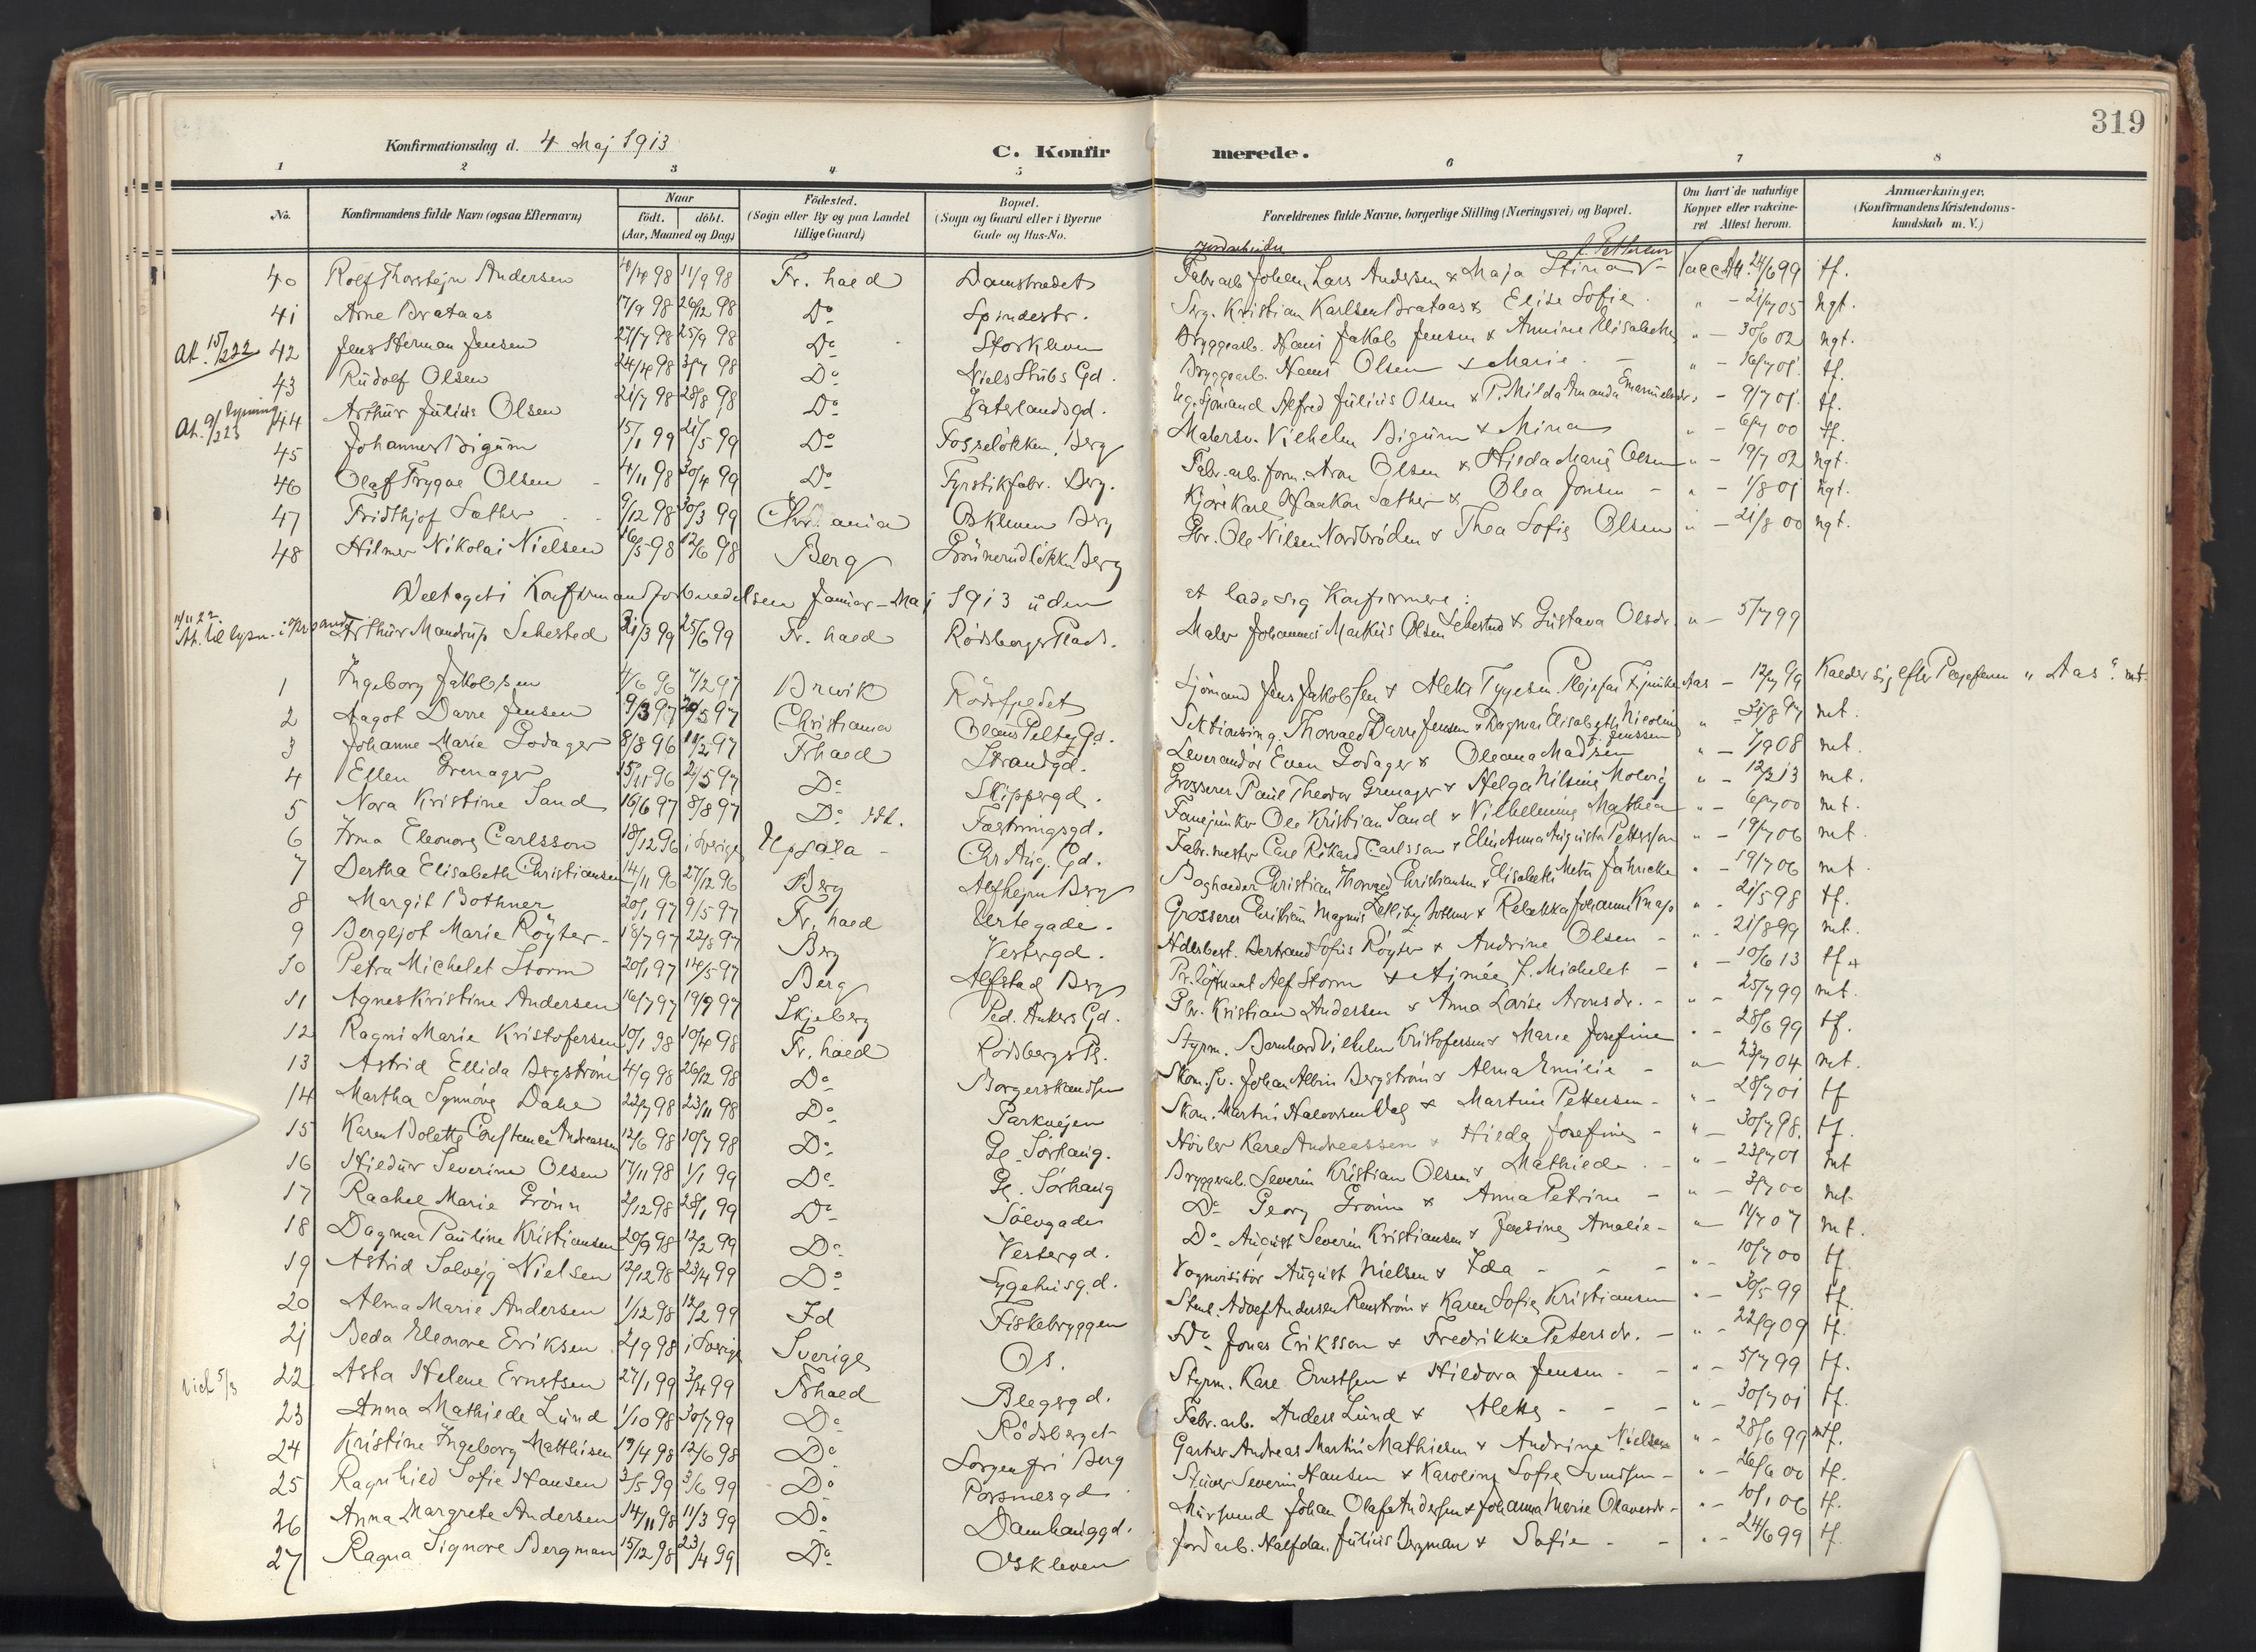 319
Konfirmationsdag d. 4 Maj 1913 C. Konfirmerede.
1 2 3 4 5 6 7 8
No. Konfirmandens fulde Navn (ogsaa Efternavn) Naar født. døbt. (Aar, Maaned og Dag) Fødested. (Sogn eller By og paa Landet tillige Gaard) Bopæl. (Sogn og Gaard eller i Byerne Gade og Hus-No. Forældrenes fulde Navne, borgerlige Stilling (Næringsvei) og Bopæl. Om havt de naturlige Kopper eller vakcineret Attest herom. Anmærkninger. (Konfirmandens Kristendomskundskab m. V.)
Jordarbeider f. Pettersen
40 Rolf Thorstejn Andersen 10/4 98 11/9 98 Fr. hald Damstrædet Fabr arb Johan Lars Andersen & Maja Stina Vacc Att. 24/6 99 tf.
41 Arne Brataas 17/9 98 26/12 98 Do Spindestr. Kristian Karlsen Brataas & Elise Sofie " - 21/7 05 ngt.
At. 15/222 42 Jens Herman Jensen 27/7 98 25/9 98 Do Storkleven Bryggearb. Hans Jakob Jensen & Annine Elisabeth " - 30/6 02 ngt.
43 Rudolf Olsen 24/4 98 3/7 98 Do Niels Stubs Gd. Bryggearb. Hans Olsen & Marie - " - 16/7 01 tf.
At. 9/223 lysning 44 Arthur Julius Olsen 21/7 98 28/8 98 Do Vaterlandsgd. Sjømand Alfred Julius Olsen & P. Milda Amanda Emanuelsdr. " - 9/7 01 tf.
45 Johannes Bigum 15/1 99 21/5 99 Do Fosseløkken, Berg Malersv. Vilhelm Bigum & Mina " - 6/7 00 tf.
46 Olaf Trygve Olsen 4/11 98 30/4 99 Do Fyrstikfabr. Berg. Fabr. arb. form. Aron Olsen & Hilda Marie Olsen " - 19/7 02 ngt.
47 Fridthjof Sæther 9/12 98 30/3 99 Chr. ania Oskleven Berg Kjørekarl Haakon Sæther & Olea Jonsen - " - 1/8 01 ngt.
48 Hilmer Nikolai Nielsen 16/5 98 12/6 98 Berg Grünerudløkken Berg Gbr. Ole Nilsen Nordbrøden & Thea Sofie Olsen " - 21/8 00 ngt.
Deltaget i Konfirmandforberedelsen Januar - Maj 1913 uden at lade sig Konfirmere:
11/11 22 At. til lysn.
Arthur Mandrup Sehested 21/3 99 25/6 99 Fr. hald Rødsbergs Plads. Maler Johannes Markus Olsen Sehested & Gustava Olsdr. " - 5/7 99
1 Ingeborg Jakobsen 4/6 96 7/2 97 Brevik Rødsfjeldet Sjømand Jens Jakobsen & Alette Tygesen. Plejefar Aas - 12/7 99 Kalder sig efter Plejefaren "Aas". mt.
2 Aagot Darre Jensen 9/3 97 29/5 97 Christiania Olaus Peltz Gd. Sektionsing. Thorvald Darre Jensen & Dagmar Elisabeth Nicoline f. Jenssen " - 31/8 97 mt.
3 Johanne Marie Godager 8/8 96 11/2 97 Frhald Strandgd. Leverandør Even Godager & Oleana Madsen " - 7/9 08 mt.
4 Ellen Grenager 15/11 96 21/5 97 Do Skippergd. Grosserer Paul Theodor Grenager & Helga Nilsine Molvig " - 12/2 13 mt.
5 Nora Kristine Sand 16/6 97 8/8 97 Do Fæstningsgd. Fanejunker Ole Kristian Sand & Vilhelmine Mathea " - 6/7 00 mt.
6 Irma Eleonora Carlsson 18/12 96 i Sverige Upsala - Chr Aug. Gd. Fabr. mester Carl Rikard Carlsson & Elin Anna Augusta Pettersson " - 19/7 06 mt.
7 Bertha Elisabeth Christiansen 14/11 96 27/12 96 Berg Alfhejm Berg Bogholder Christian Thorvald Christiansen & Elisabeth Meta Jahncke " - 19/7 06 mt.
8 Margit Bothner 20/1 97 9/5 97 Fr. hald Urtegade. Grosserer Christian Magnus Zetlitz Bothner & Rebekka Johanne Knap " - 21/5 98 tf.
9 Bergljot Marie Røyter - 18/7 97 22/8 97 Berg Vestergd. Hdlsbest. Bertrand Sofus Røyter & Andrine Olsen - " - 21/8 99 mt.
10 Petra Michelet Storm 20/1 97 14/5 97 Berg Alfstad Berg Pr. løjtnant Alf Storm & Aimée F. Michelet - " - 10/6 13 tf.+
11 Agnes Kristine Andersen 16/7 97 19/9 97 Skjeberg Ped. Ankers Gd. Gbr. Kristian Andersen & Anna Lovise Aronsdr. - " - 25/7 99 mt.
12 Ragni Marie Kristofersen 10/1 98 10/4 98 Fr. hald Rødsbergs Pl. Styrm. Bernhard Vilhelm Kristofersen & Marie Josefine " - 28/6 99 tf.
13 Astrid Ellida Bergstrøm 4/9 98 26/12 98 Do Borgerskandsen Skom. sv. Johan Albin Bergstrøm & Alma Emilie - " - 23/7 04 mt.
14 Martha Synnøve Dahl 22/7 98 23/11 98 Do Parkvejen Skom. Martin Halvorsen Dal & Martine Pettersen - " - 28/7 01 tf
15 Karen Bolette Constance Andreassen 12/6 98 10/7 98 Do Gl. Sørhaug. Høvler Karl Andreassen & Hilda Josefine - " - 30/7 98. tf.
16 Hildur Severine Olsen 17/11 98 1/1 99 Do Gl. Sørhaug Bryggearb. Severin Kristian Olsen & Mathilde - " - 23/7 01 mt
17 Rachel Marie Grønn 2/12 98 28/1 99 Do Sølvgaden Do Georg Grønn & Anna Petrine - " - 3/7 00 mt.
18 Dagmar Pauline Kristiansen 20/9 98 12/2 99 Do Vestergd. Do August Severin Kristiansen & Josine Amalie - " - 11/7 07 mt.
19 Astrid Solvejg Nielsen 12/12 98 23/4 99 Do Sygehusgd. Vognvisitør August Nielsen & Ida - - - " - 10/7 00 tf.
20 Alma Marie Andersen 1/12 98 12/2 99 Id Fiskebryggen Stenh. Adolf Andersen Renstrøm & Karen Sofie Kristiansen " - 30/5 99 tf.
21 Beda Eleonore Eriksen 2/9 98 i Sverige Sverige Os. Do Jonas Eriksson & Fredrikke Petersdr. - " - 22/9 09 tf.
Viet 5/3 22 Asta Helene Ernstsen 27/1 99 3/4 99 Frhald Blegegd. Styrm. Karl Ernstsen & Hildora Jensen - - " - 5/7 99 tf.
23 Anna Mathilde Lund 1/10 98 30/7 99 Do Rødsberget Fabr. arb. Anders Lund & Alette - - - " - 30/7 01 tf.
24 Kristine Ingeborg Matthisen 19/4 98 12/6 98 Do Sorgenfri Berg Gartner Andreas Martin Mathiesen & Andrine Nielsen " - 28/6 99 mtf.
25 Ragnhild Sofie Hansen 3/5 99 3/6 99 Do Pærsmesgd. Stuver Severin Hansen & Karoline Sofie Svendsen - " - 26/6 00 tf.
26 Anna Margrete Andersen 14/11 98 11/3 99 Do Damhauggd. Mursvend Johan Olaf Andersen & Johanna Marie Olavesdr. - " - 10/1 06 tf.
27 Ragna Signore Bergman 15/12 98 23/4 99 Do Oskleven Jordarb. Halfdan Julius Bergman & Sofie - - " - 24/6 99 tf.